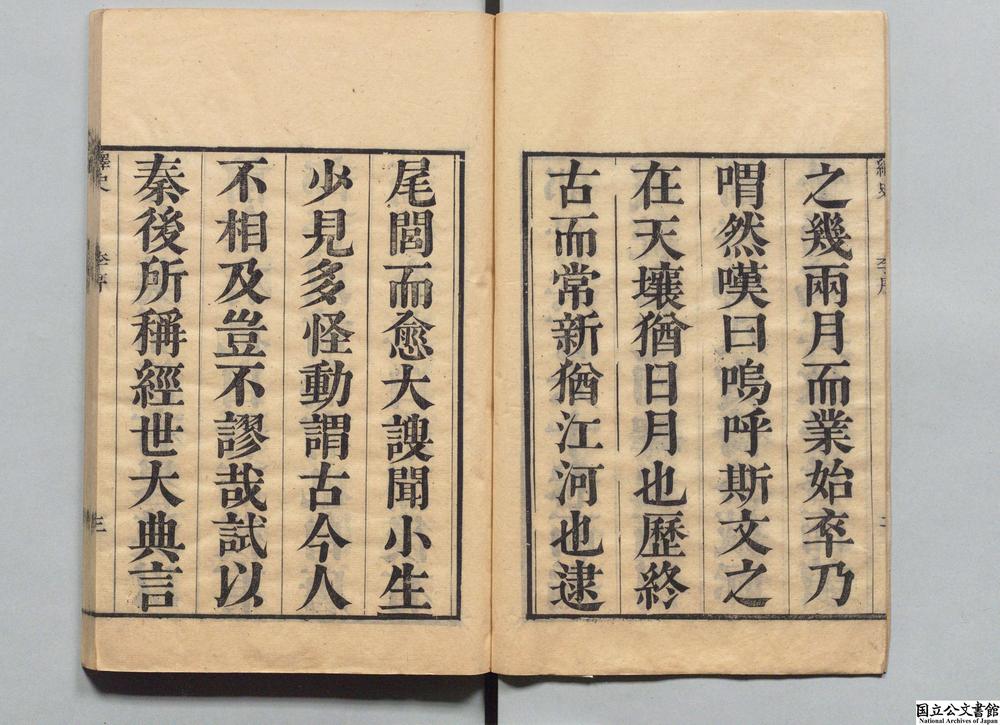 之幾兩月而業始卒乃
喟然嘆曰嗚呼斯文之
在天壤猶日月也歷終
古而常新猶江河也逮
尾閭而愈大謏聞小生
少見多怪動謂古今人
不相及豈不謬哉試以
秦後所稱經世大典言
繹史
李序
三
国立公文書館
National Archives of Japan